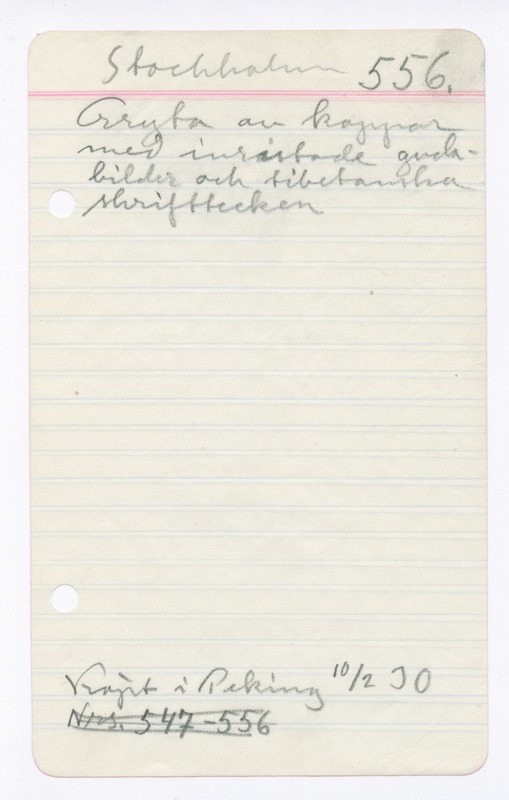 Stockholm 556.
Gryta av koppar
med inristade guda-
bilder och tibetanska
skrifttecken
Köpt i Peking 10/2 30
Nrs. 547-556